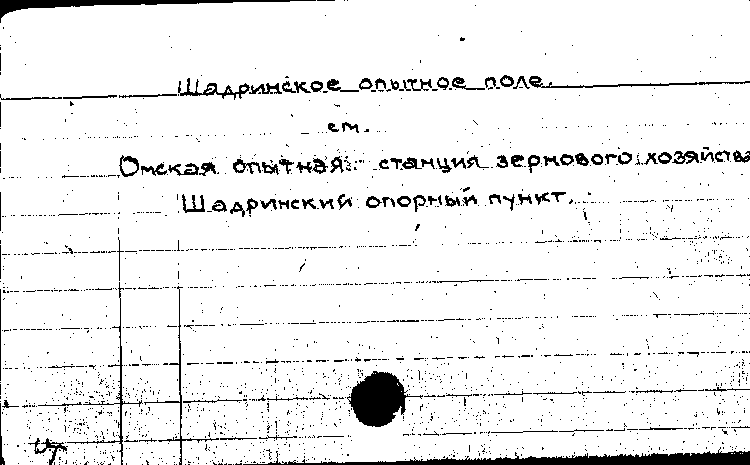 Шадринское опытное поле.
см.
Омская опытная станция зернового хозяйства
Шадринский опорный пункт.